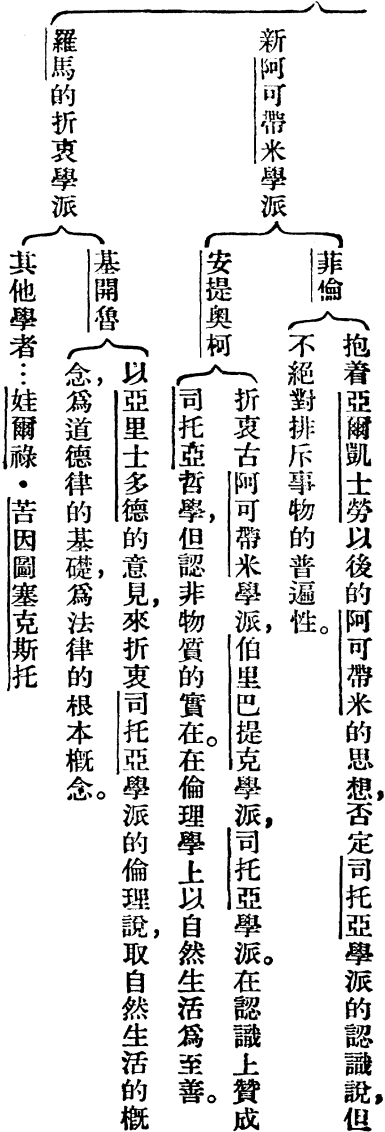 新阿可帶米學派
菲倫
抱着亞爾凱士勞以後的阿可帶米的思想，否定司托亞學派的認識說，但
不絕對排斥事物的普遍性。
安提奧柯
折衷古阿可帶米學派，伯里巴提克學派，司托亞學派。在認識上贊成
司托亞哲學，但認非物質的實在。在倫理學上以自然生活爲至善。
羅馬的折衷學派
基開魯
以亞里士多德的意見，來折衷司托亞學派的倫理說，取自然生活的概
念，爲道德律的基礎，爲法律的根本概念。
其他學者：娃爾祿·苦因圖塞克斯托